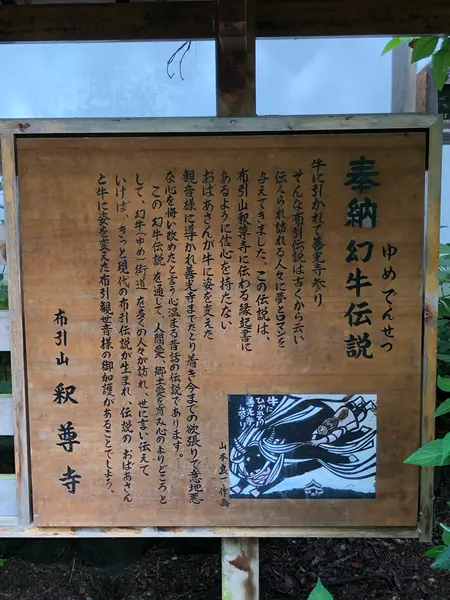 奉納 幻牛伝説
ゆめ でんせつ
牛に引かれて善光寺参り
そんな布引伝説は古くから云い
伝えられ訪れる人々に夢とロマンを
与えてきました。この伝説は、
布引山釈尊寺に伝わる縁起書に
あるように信心を持たない
おばあさんが牛に姿を変えた
観音様に導かれ善光寺までたどり着き今までの欲張りで意地悪
な心を悔い改めたと言う心温まる昔話の伝説であります。
この幻牛伝説を通して、人間愛、郷土愛を育み心のよりどころと
して、幻牛(ゆめ)街道を多くの人々が訪れ、世に言い伝えて
いけば、きっと現代の布引伝説が生まれ、伝説のおばあさん
と牛に姿を変えた布引観世音様の御加護があることでしょう。
布引山 釈尊寺
牛に
ひかれて
善光寺
山本真一作画